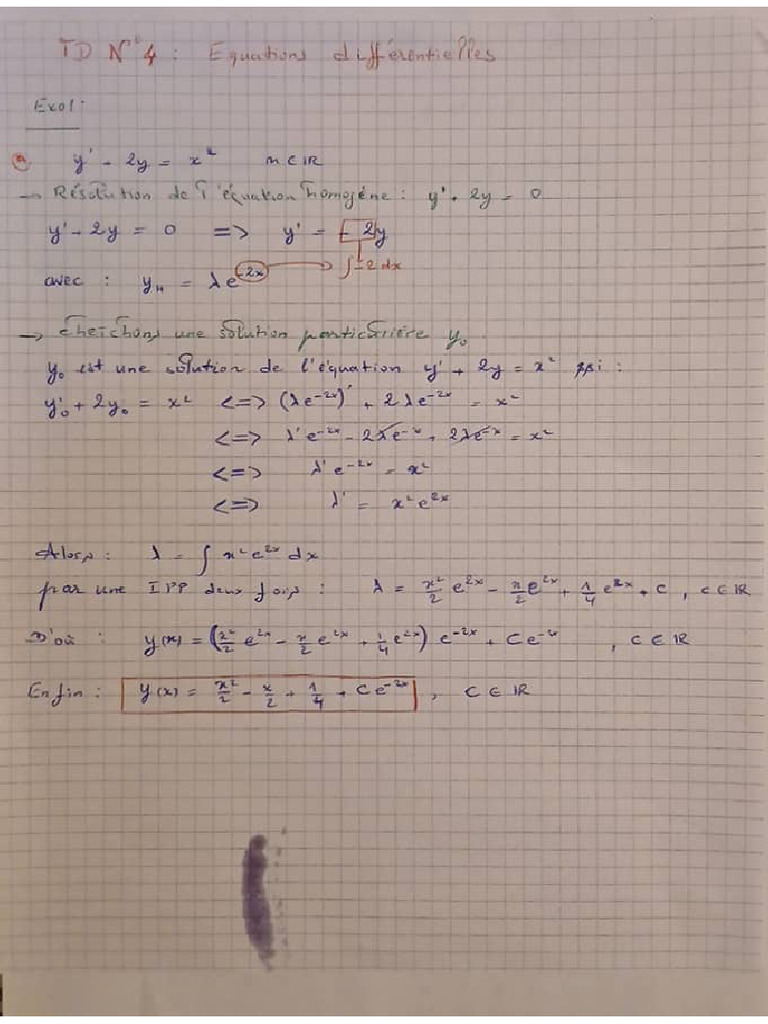 TD N°4 : Equations différentielles
Exo1:
a) y' - 2y = x² n ∈ IR
→ Résolution de l'équation homogène : y' - 2y = 0
y' - 2y = 0 => y' = - 2y
avec : y_H = λe^{-2x} → ∫-2 dx
→ cherchons une solution particulière y₀
y₀ est une solution de l'équation y' + 2y = x² ssi :
y'₀ + 2y₀ = x² <=> (λe^{-2x})' + 2λe^{-2x} = x²
<=> λ'e^{-2x} - 2λe^{-x} + 2λe^{-x} = x²
<=> λ'e^{-2x} = x²
<=> λ' = x²e^{2x}
Alors : λ = ∫ x²e^{2x} dx
par une IPP deux fois : λ = x²/2 e^{2x} - x/2 e^{2x} + 1/4 e^{2x} + c , c ∈ IR
D'où : y(x) = (x²/2 e^{2x} - x/2 e^{2x} + 1/4 e^{2x}) e^{-2x} + Ce^{-2x} , C ∈ IR
Enfin : y(x) = x²/2 - x/2 + 1/4 + Ce^{-2x} , C ∈ IR